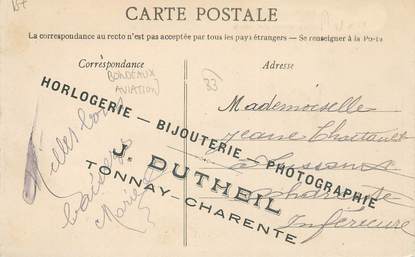 CARTE POSTALE
La correspondance au recto n'est pas acceptée par tous les pays étrangers — Se renseigner à la Poste
Correspondance
Adresse
BORDEAUX
AVIATION
33
Mille bons
baisers
Mademoiselle
Jeane
à
Charente
Inférieure
HORLOGERIE — BIJOUTERIE — PHOTOGRAPHIE
J. DUTHEIL
TONNAY-CHARENTE